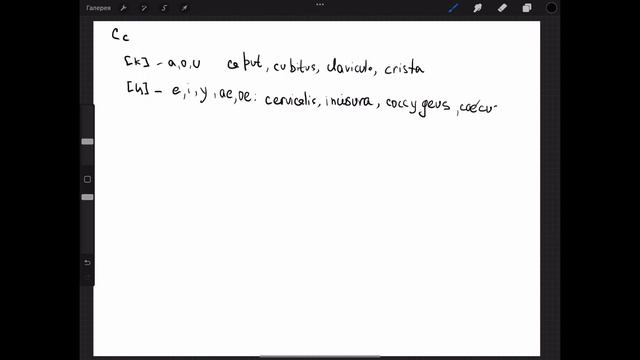 Галерея
C c
[k] - a, o, u caput, cubitus, clavicula, crista
[ц] - e, i, y, ae, oe: cervicalis, incisura, coccygeus, caecu